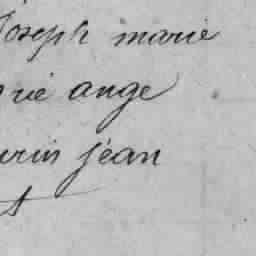 Joseph marie
rie ange
urin jean
t